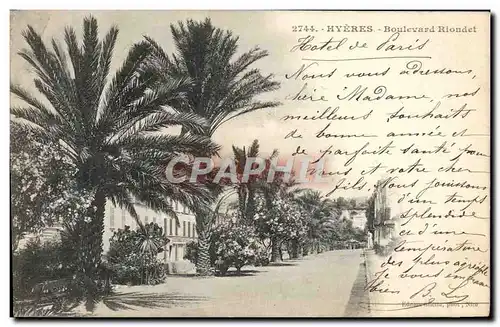 2744. - HYÈRES - Boulevard Riondet
Hotel de Paris
Nous vous adressons,
chère Madame, nos
meilleurs souhaits
de bonne année et
de parfaite santé pour
vous et votre cher
fils. Nous jouissons
d'un temps
splendide
et d'une
température
CPA
Je vous em
bien
Nice